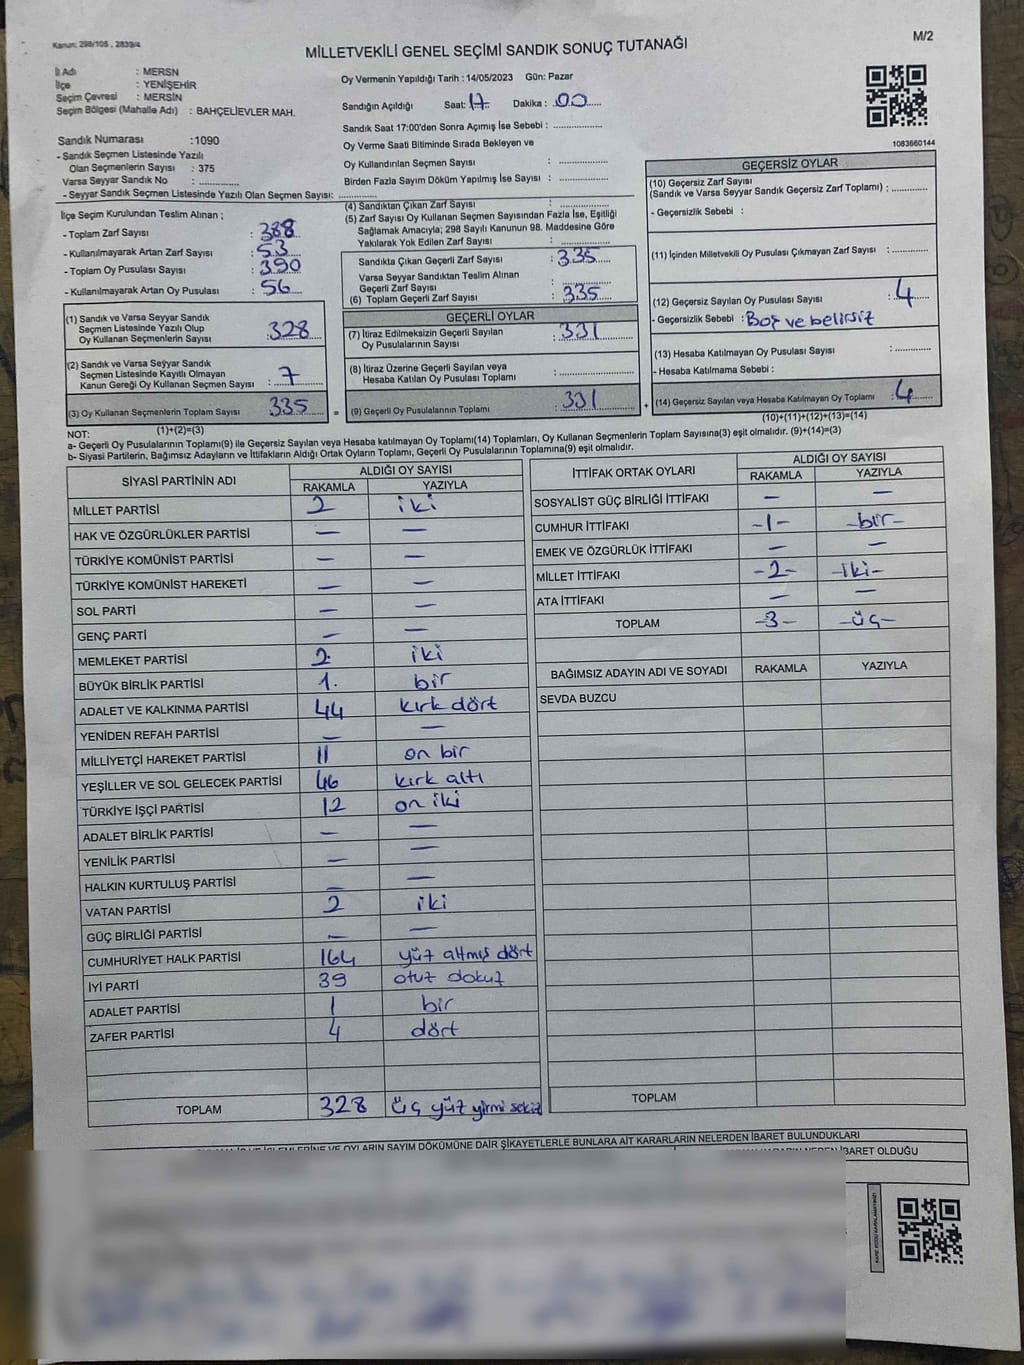 Kanun: 298/105 , 2839/4
MİLLETVEKİLİ GENEL SEÇİMİ SANDIK SONUÇ TUTANAĞI
M/2
İl Adı : MERSN
İlçe : YENİŞEHİR
Seçim Çevresi : MERSİN
Seçim Bölgesi (Mahalle Adı) : BAHÇELİEVLER MAH.
Sandık Numarası :1090
- Sandık Seçmen Listesinde Yazılı
Olan Seçmenlerin Sayısı : 375
Varsa Seyyar Sandık No : ............
- Seyyar Sandık Seçmen Listesinde Yazılı Olan Seçmen Sayısı: ............
Oy Vermenin Yapıldığı Tarih : 14/05/2023 Gün: Pazar
Sandığın Açıldığı Saat: 17 Dakika : 00
Sandık Saat 17:00'den Sonra Açımış İse Sebebi : ............
Oy Verme Saati Bitiminde Sırada Bekleyen ve
Oy Kullandırılan Seçmen Sayısı : ............
Birden Fazla Sayım Döküm Yapılmış İse Sayısı : ............
1083660144
İlçe Seçim Kurulundan Teslim Alınan ;
- Toplam Zarf Sayısı : 388
- Kullanılmayarak Artan Zarf Sayısı : 53
- Toplam Oy Pusulası Sayısı : 390
- Kullanılmayarak Artan Oy Pusulası : 56
(1) Sandık ve Varsa Seyyar Sandık
Seçmen Listesinde Yazılı Olup
Oy Kullanan Seçmenlerin Sayısı :328
(2) Sandık ve Varsa Seyyar Sandık
Seçmen Listesinde Kayıtlı Olmayan
Kanun Gereği Oy Kullanan Seçmen Sayısı : 7
(3) Oy Kullanan Seçmenlerin Toplam Sayısı 335
(1)+(2)=(3)
(4) Sandıktan Çıkan Zarf Sayısı : ............
(5) Zarf Sayısı Oy Kullanan Seçmen Sayısından Fazla İse, Eşitliği
Sağlamak Amacıyla; 298 Sayılı Kanunun 98. Maddesine Göre
Yakılarak Yok Edilen Zarf Sayısı : ............
Sandıkta Çıkan Geçerli Zarf Sayısı : 335
Varsa Seyyar Sandıktan Teslim Alınan
Geçerli Zarf Sayısı : ............
(6) Toplam Geçerli Zarf Sayısı : 335
GEÇERLİ OYLAR
(7) İtiraz Edilmeksizin Geçerli Sayılan
Oy Pusulalarının Sayısı : 331
(8) İtiraz Üzerine Geçerli Sayılan veya
Hesaba Katılan Oy Pusulası Toplamı : ............
= (9) Geçerli Oy Pusulalarının Toplamı : 331
GEÇERSİZ OYLAR
(10) Geçersiz Zarf Sayısı
(Sandık ve Varsa Seyyar Sandık Geçersiz Zarf Toplamı) : ............
- Geçersizlik Sebebi :
(11) İçinden Milletvekili Oy Pusulası Çıkmayan Zarf Sayısı : ............
(12) Geçersiz Sayılan Oy Pusulası Sayısı : 4
- Geçersizlik Sebebi : Boş ve belirsiz
(13) Hesaba Katılmayan Oy Pusulası Sayısı : ............
- Hesaba Katılmama Sebebi :
+ (14) Geçersiz Sayılan veya Hesaba Katılmayan Oy Toplamı : 4
(10)+(11)+(12)+(13)=(14)
NOT:
a- Geçerli Oy Pusulalarının Toplamı(9) ile Geçersiz Sayılan veya Hesaba katılmayan Oy Toplamı(14) Toplamları, Oy Kullanan Seçmenlerin Toplam Sayısına(3) eşit olmalıdır. (9)+(14)=(3)
b- Siyasi Partilerin, Bağımsız Adayların ve İttifakların Aldığı Ortak Oyların Toplamı, Geçerli Oy Pusulalarının Toplamına(9) eşit olmalıdır.
SİYASİ PARTİNİN ADI ALDIĞI OY SAYISI
RAKAMLA YAZIYLA
MİLLET PARTİSİ 2 iki
HAK VE ÖZGÜRLÜKLER PARTİSİ — —
TÜRKİYE KOMÜNİST PARTİSİ — —
TÜRKİYE KOMÜNİST HAREKETİ — —
SOL PARTİ — —
GENÇ PARTİ — —
MEMLEKET PARTİSİ 2 iki
BÜYÜK BİRLİK PARTİSİ 1. bir
ADALET VE KALKINMA PARTİSİ 44 kırk dört
YENİDEN REFAH PARTİSİ — —
MİLLİYETÇİ HAREKET PARTİSİ 11 on bir
YEŞİLLER VE SOL GELECEK PARTİSİ 46 kırk altı
TÜRKİYE İŞÇİ PARTİSİ 12 on iki
ADALET BİRLİK PARTİSİ — —
YENİLİK PARTİSİ — —
HALKIN KURTULUŞ PARTİSİ — —
VATAN PARTİSİ 2 iki
GÜÇ BİRLİĞİ PARTİSİ — —
CUMHURİYET HALK PARTİSİ 164 yüz altmış dört
İYİ PARTİ 39 otuz dokuz
ADALET PARTİSİ 1 bir
ZAFER PARTİSİ 4 dört
TOPLAM 328 üç yüz yirmi sekiz
İTTİFAK ORTAK OYLARI ALDIĞI OY SAYISI
RAKAMLA YAZIYLA
SOSYALİST GÜÇ BİRLİĞİ İTTİFAKI — —
CUMHUR İTTİFAKI -1- -bir-
EMEK VE ÖZGÜRLÜK İTTİFAKI — —
MİLLET İTTİFAKI -2- -iki-
ATA İTTİFAKI — —
TOPLAM -3- -üç-
BAĞIMSIZ ADAYIN ADI VE SOYADI RAKAMLA YAZIYLA
SEVDA BUZCU
TOPLAM
VE OYLARIN SAYIM DÖKÜMÜNE DAİR ŞİKAYETLERLE BUNLARA AİT KARARLARIN NELERDEN İBARET BULUNDUKLARI
İBARET OLDUĞU